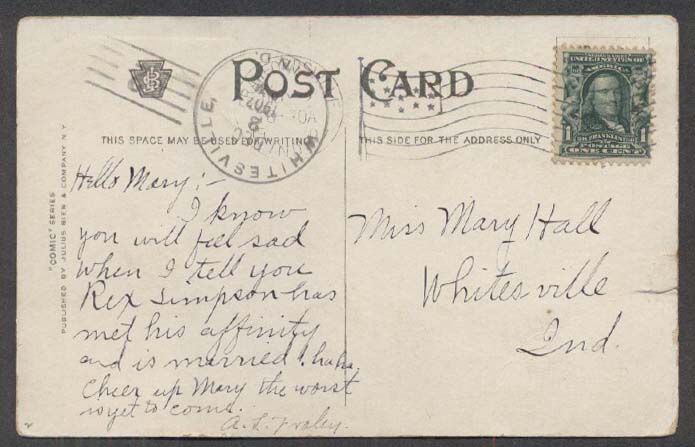 POST CARD
WHITESVILLE,
THIS SPACE MAY BE USED FOR WRITING
THIS SIDE FOR THE ADDRESS ONLY
UNITED STATES OF AMERICA
1 1
POSTAGE
ONE CENT
"COMIC" SERIES
PUBLISHED BY JULIUS BIEN & COMPANY N.Y.
Hello Mary:-
I know
you will feel sad
when I tell you
Rex Simpson has
met his affinity
and is married! haha
Cheer up Mary the worst
is yet to come.
A. L. Fraley.
Miss Mary Hall
Whitesville
Ind.